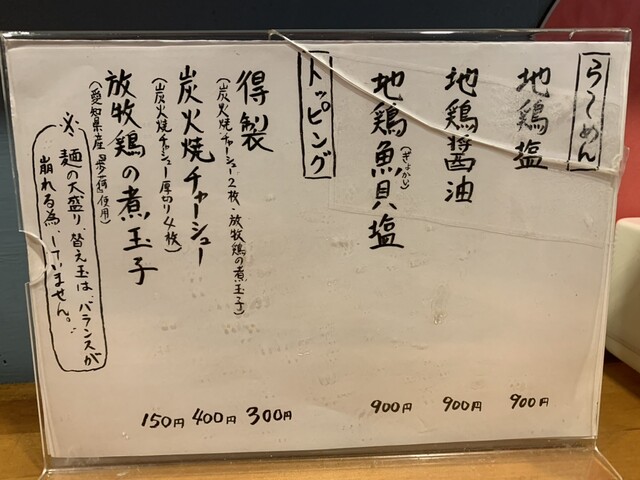 らーめん
地鶏塩 900円
地鶏醤油 900円
地鶏魚貝塩 900円
(ぎょかい)
トッピング
得製 300円
(炭火焼チャーシュー2枚・放牧鶏の煮玉子)
炭火焼チャーシュー 400円
(炭火焼チャーシュー厚切り4枚)
放牧鶏の煮玉子 150円
(愛知県産 使用)
※麺の大盛り、替え玉は、バランスが
崩れる為、していません。